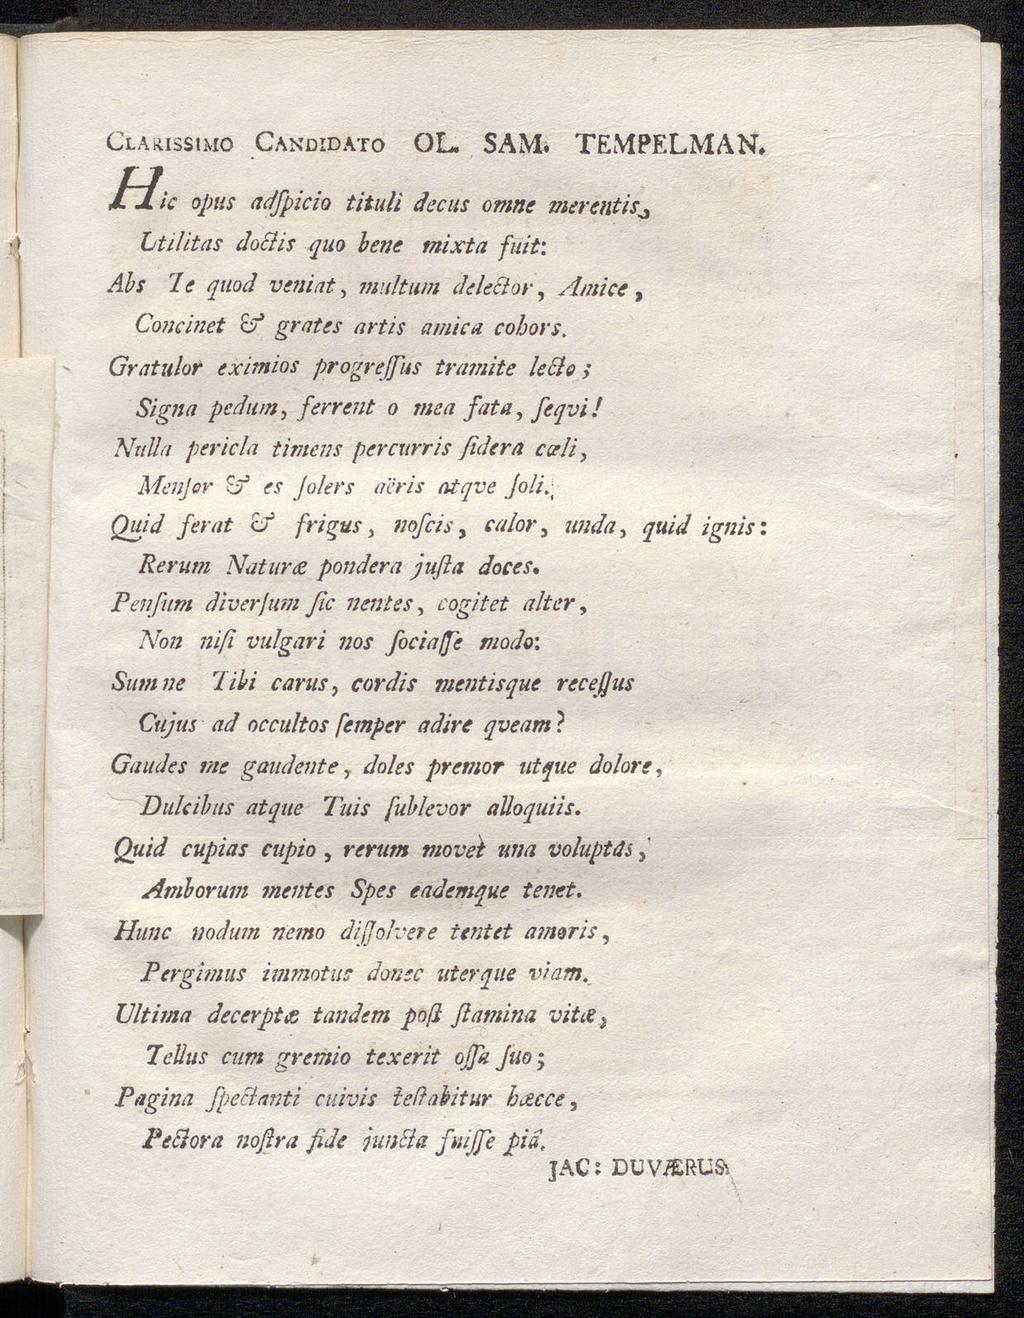 CLARISSIMO CANDIDATO OL. SAM. TEMPELMAN.
Hic opus adſpicio tituli decus omne merentis,
Utilitas doctis quo bene mixta fuit:
Abs Te quod veniat, multum delector, Amice,
Concinet & grates artis amica cohors.
Gratulor eximios progreſſus tramite lecto;
Signa pedum, ferrent o mea fata, ſeqvi!
Nulla pericla timens percurris ſidera cœli,
Menſor & es ſolers aëris atqve ſoli.
Quid ferat & frigus, noſcis, calor, unda, quid ignis:
Rerum Naturæ pondera juſta doces.
Penſum diverſum ſic nentes, cogitet alter,
Non niſi vulgari nos ſociaſſe modo:
Sum ne Tibi carus, cordis mentisque receſſus
Cujus ad occultos ſemper adire qveam?
Gaudes me gaudente, doles premor utque dolore,
Dulcibus atque Tuis ſublevor alloquiis.
Quid cupias cupio, rerum movet una voluptas,
Amborum mentes Spes eademque tenet.
Hunc nodum nemo diſſolvere tentet amoris,
Pergimus immotus donec uterque viam.
Ultima decerptæ tandem poſt ſtamina vitæ,
Tellus cum gremio texerit oſſa ſuo;
Pagina ſpectanti cuivis teſtabitur hæcce,
Pectora noſtra fide juncta fuiſſe piâ.
JAC: DUVÆRUS.